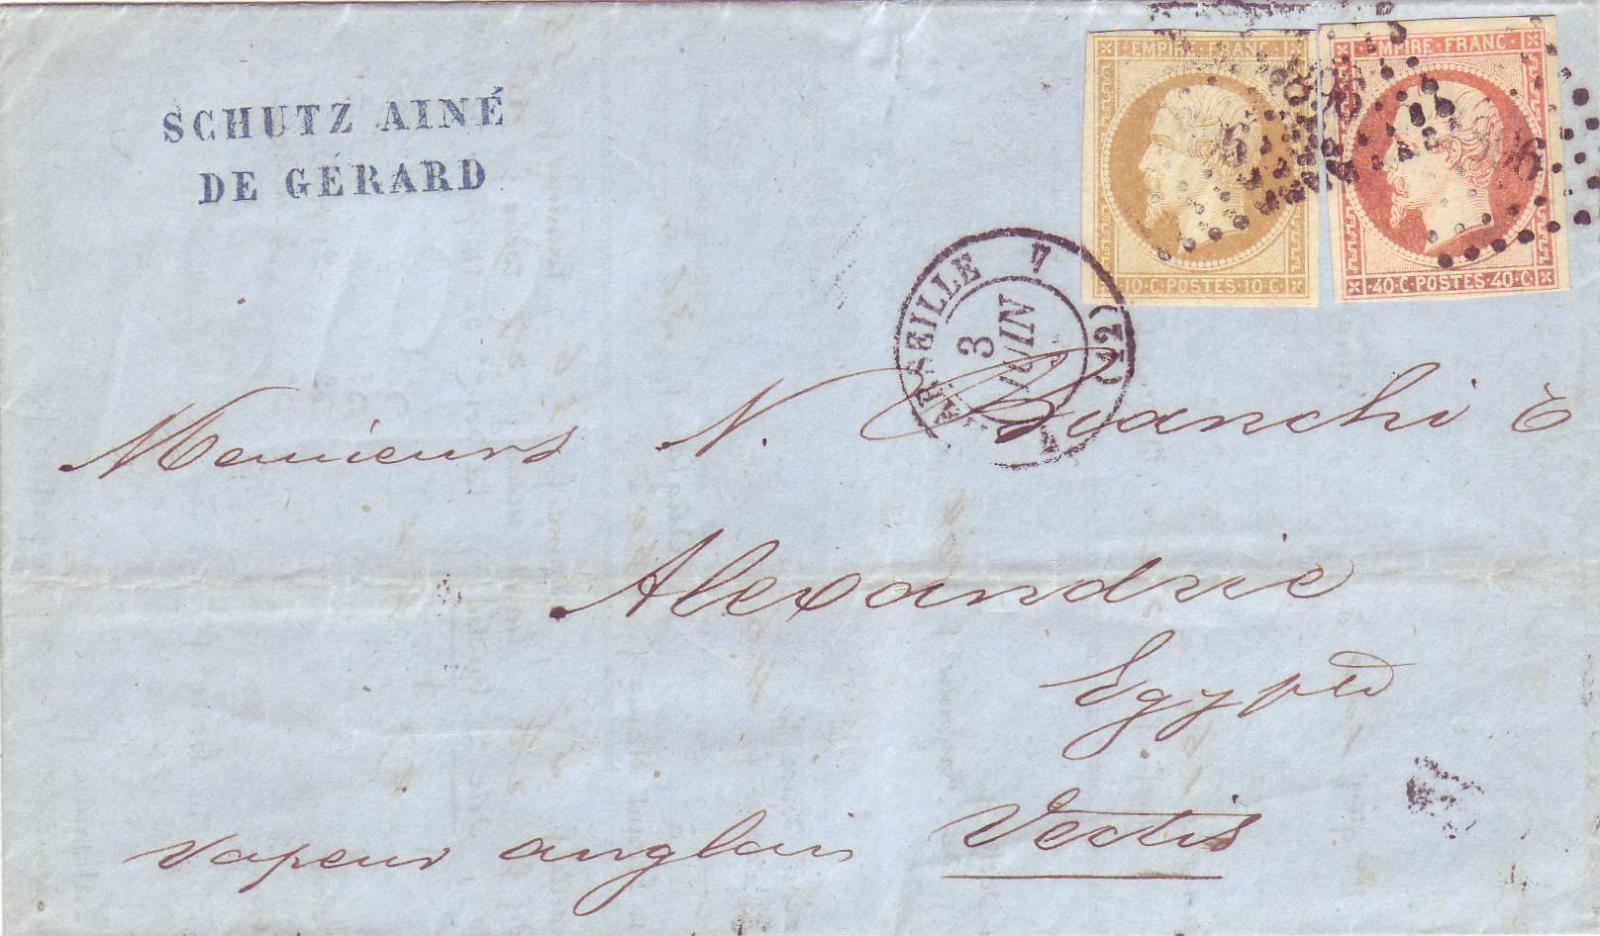 SCHUTZ AINÉ
DE GÉRARD
EMPIRE FRANC
10·C·POSTES·10·C
EMPIRE·FRANC·
40·C·POSTES·40·C
MARSEILLE
3
JUIN
(12)
Messieurs N. Bianchi &
Alexandrie
Egypte
Vapeur anglais Vectis